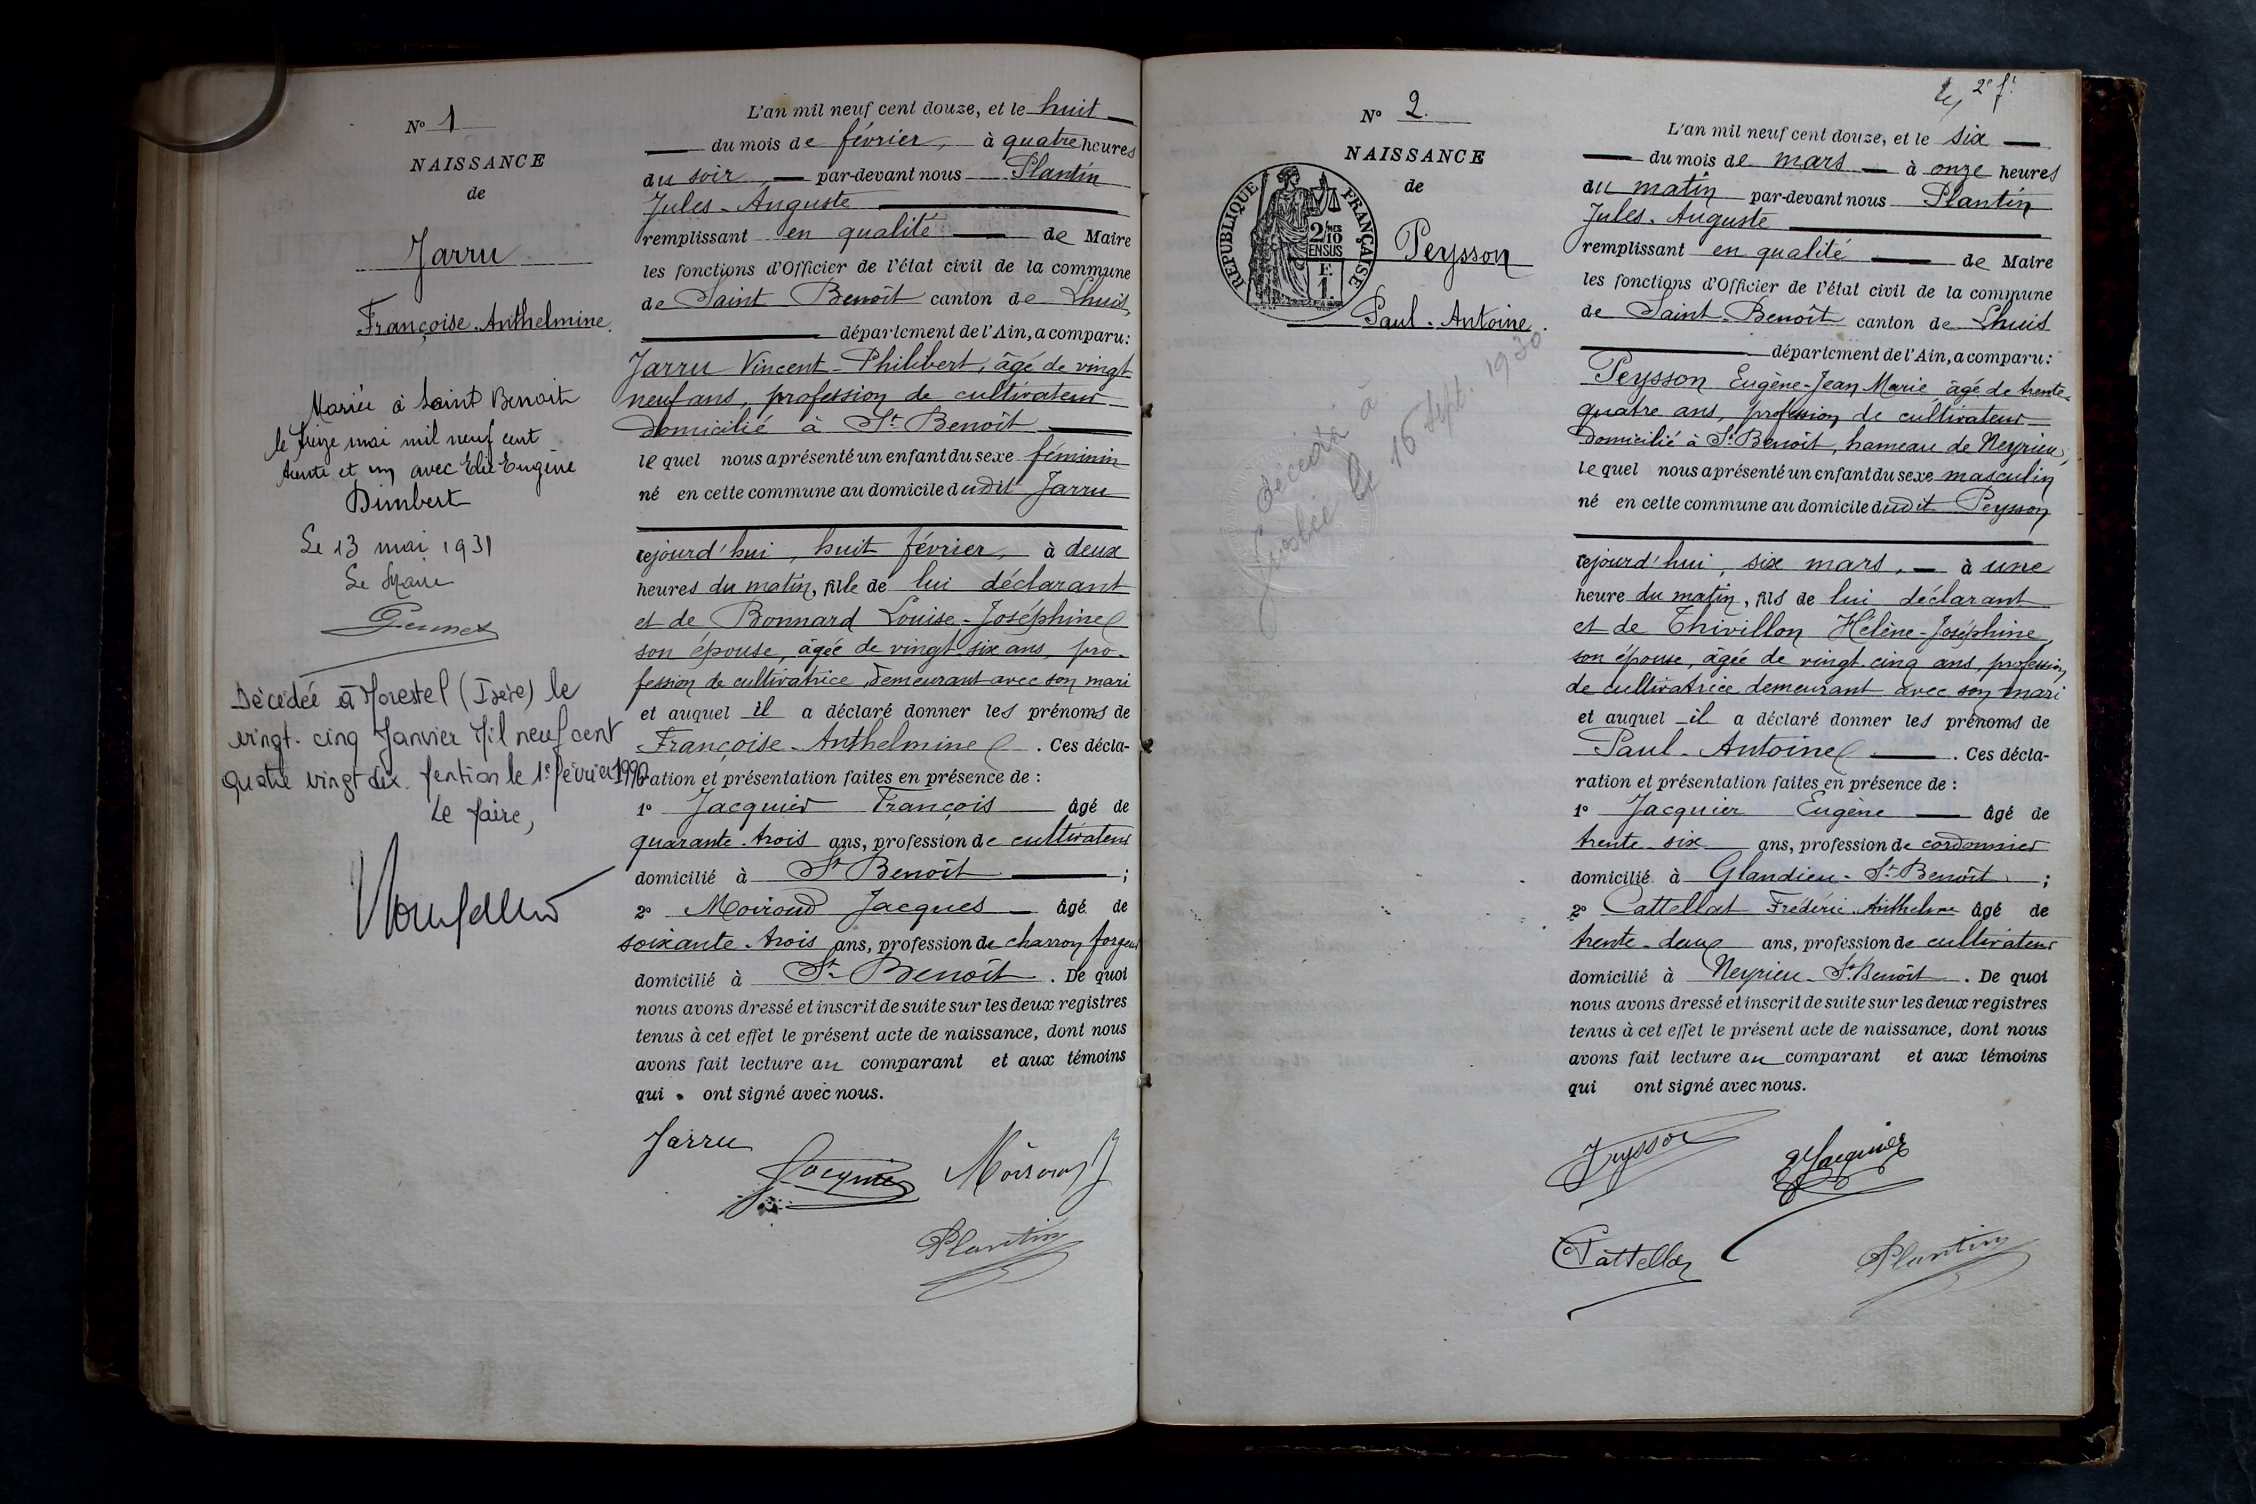 N° 1
NAISSANCE
de
Jarru
Françoise-Anthelmine.
Mariée à Saint Benoit
le treize mai mil neuf cent
trente et un avec Elie Eugène
Dimbert
Le 13 mai 1931
Le Maire
Décédée à Morestel (Isère) le
vingt-cinq Janvier Mil neuf cent
quatre vingt dix. Mention le 1er février 1990
Le Maire,
L'an mil neuf cent douze, et le huit
du mois de février, à quatre heures
du soir, par-devant nous Plantin
Jules-Auguste
remplissant en qualité de Maire
les fonctions d'Officier de l'état civil de la commune
de Saint Benoît canton de Lhuis
département de l'Ain, a comparu:
Jarru Vincent-Philibert, âgé de vingt
neuf ans, profession de cultivateur
domicilié à St Benoît
le quel nous a présenté un enfant du sexe féminin
né en cette commune au domicile dudit Jarru
cejourd'hui, huit février, à deux
heures du matin, fille de lui déclarant
et de Bonnard Louise-Joséphine
son épouse, âgée de vingt-six ans, pro-
fession de cultivatrice, demeurant avec son mari
et auquel il a déclaré donner les prénoms de
Françoise-Anthelmine. Ces décla-
ration et présentation faites en présence de :
1° Jacquier François âgé de
quarante-trois ans, profession de cultivateur
domicilié à St Benoît ;
2° Moiroud Jacques âgé de
soixante-trois ans, profession de charron forgeur
domicilié à St Benoît. De quoi
nous avons dressé et inscrit de suite sur les deux registres
tenus à cet effet le présent acte de naissance, dont nous
avons fait lecture au comparant et aux témoins
qui ont signé avec nous.
Jarru
Jacquier Moiroud J
Plantin
2e ft
N° 2
NAISSANCE
de
REPUBLIQUE FRANÇAISE
2/10 EN SUS
F. 1
Peysson
Paul-Antoine.
décédé à
le 16 sept. 1930
L'an mil neuf cent douze, et le six
du mois de mars à onze heures
du matin par-devant nous Plantin
Jules-Auguste
remplissant en qualité de Maire
les fonctions d'Officier de l'état civil de la commune
de Saint-Benoît canton de Lhuis
département de l'Ain, a comparu:
Peysson Eugène-Jean Marie âgé de trente-
quatre ans, profession de cultivateur
domicilié à St Benoît, hameau de Neyrieu,
le quel nous a présenté un enfant du sexe masculin
né en cette commune au domicile dudit Peysson
cejourd'hui, six mars, à une
heure du matin, fils de lui déclarant
et de Thivillon Hélène-Joséphine,
son épouse, âgée de vingt-cinq ans, profession
de cultivatrice demeurant avec son mari
et auquel il a déclaré donner les prénoms de
Paul-Antoine. Ces décla-
ration et présentation faites en présence de :
1° Jacquier Eugène âgé de
trente-six ans, profession de cordonnier
domicilié à Glandieu-St Benoît ;
2° Cattellat Frédéric-Anthelme âgé de
trente-deux ans, profession de cultivateur
domicilié à Neyrieu-St Benoît. De quoi
nous avons dressé et inscrit de suite sur les deux registres
tenus à cet effet le présent acte de naissance, dont nous
avons fait lecture au comparant et aux témoins
qui ont signé avec nous.
Peysson Jacquier
Plantin